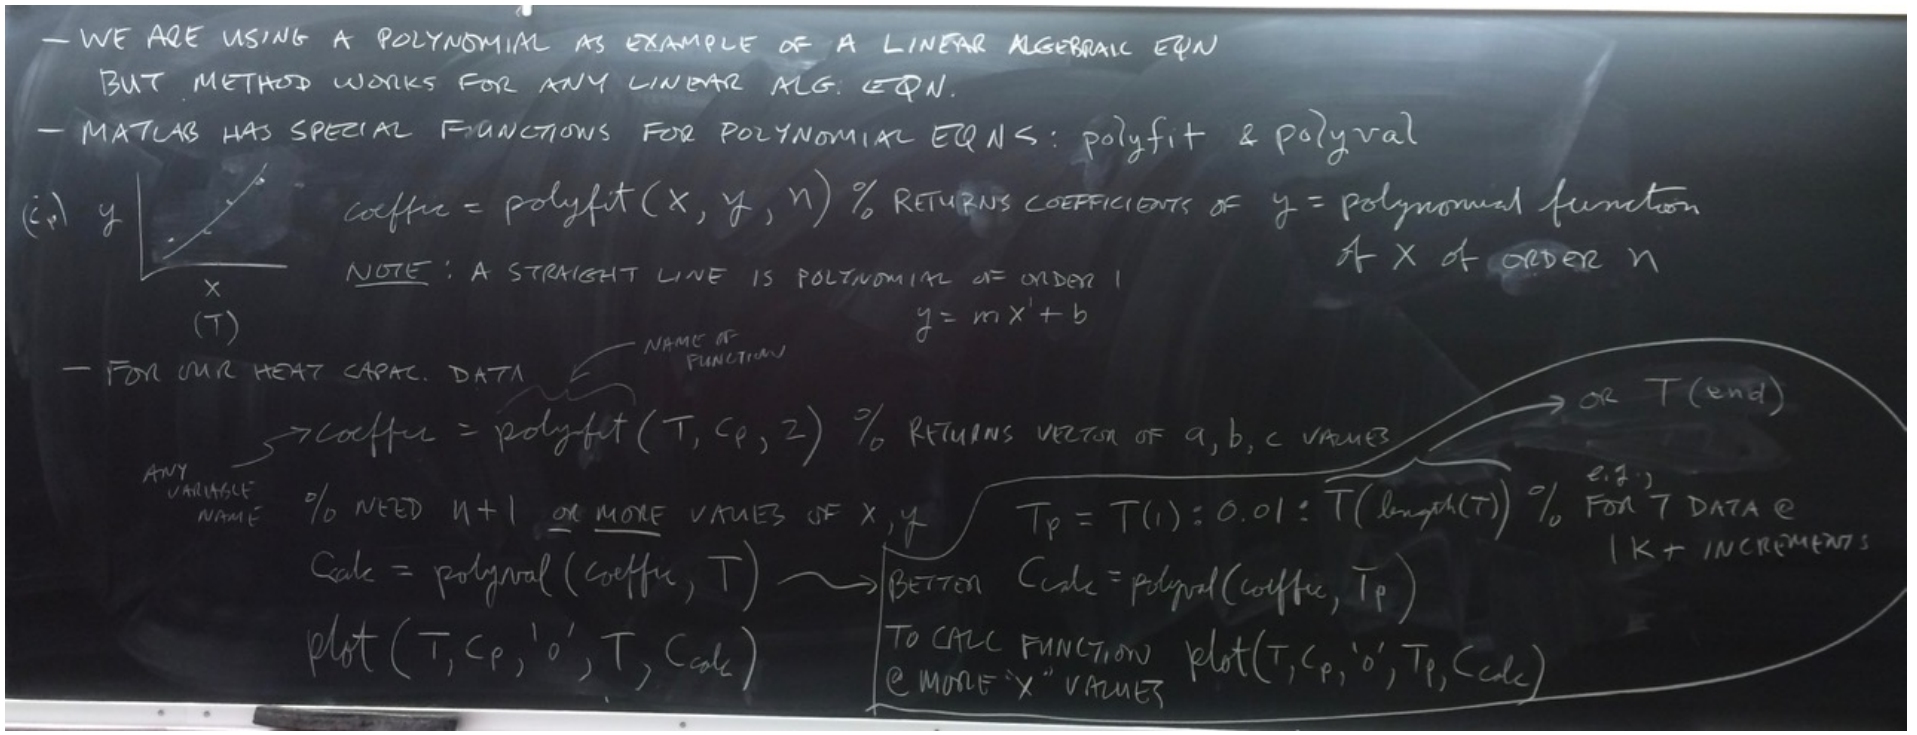 - WE ARE USING A POLYNOMIAL AS EXAMPLE OF A LINEAR ALGEBRAIC EQN
BUT METHOD WORKS FOR ANY LINEAR ALG. EQN.
- MATLAB HAS SPECIAL FUNCTIONS FOR POLYNOMIAL EQNS: polyfit & polyval
(cp) y
x
(T)
coeffic = polyfit(x, y, n) % RETURNS COEFFICIENTS OF y = polynomial function
of x of ORDER n
NOTE: A STRAIGHT LINE IS POLYNOMIAL OF ORDER 1
y = mx¹ + b
- FOR OUR HEAT CAPAC. DATA
NAME OF
FUNCTION
coeffic = polyfit(T, cp, 2) % RETURNS VECTOR OF a, b, c VALUES
ANY
VARIABLE
NAME
% NEED n+1 or MORE VALUES OF x, y
Ccalc = polyval(coeffic, T)
plot(T, cp, 'o', T, Ccalc)
or T(end)
Tp = T(1) : 0.01 : T(length(T)) % e.g.,
FOR T DATA @
1 K + INCREMENTS
BETTER Ccalc = polyval(coeffic, Tp)
TO CALC FUNCTION
@ MORE "X" VALUES
plot(T, cp, 'o', Tp, Ccalc)